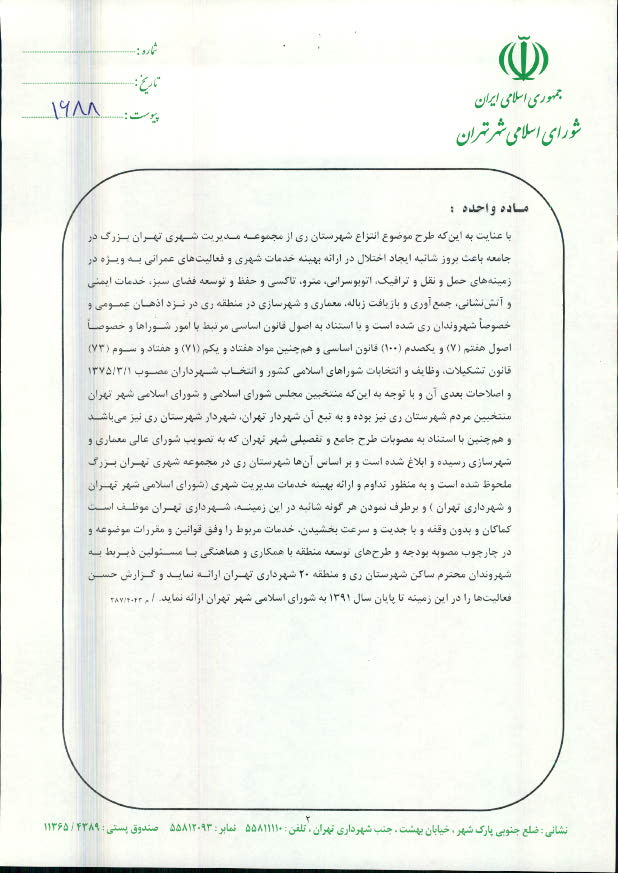 جمهوری اسلامی ایران
شورای اسلامی شهر تهران
شماره :
تاریخ :
پیوست : ۱۶۸۸
مـاده واحده :
با عنایت به این‌که طرح موضوع انتزاع شهرستان ری از مجموعه مدیریت شهری تهران بزرگ در
جامعه باعث بروز شائبه ایجاد اختلال در ارائه بهینه خدمات شهری و فعالیت‌های عمرانی به ویژه در
زمینه‌های حمل و نقل و ترافیک، اتوبوسرانی، مترو، تاکسی و حفظ و توسعه فضای سبز، خدمات ایمنی
و آتش‌نشانی، جمع‌آوری و بازیافت زباله، معماری و شهرسازی در منطقه ری در نزد اذهان عمومی و
خصوصاً شهروندان ری شده است و با استناد به اصول قانون اساسی مرتبط با امور شوراها و خصوصاً
اصول هفتم (۷) و یکصدم (۱۰۰) قانون اساسی و هم‌چنین مواد هفتاد و یکم (۷۱) و هفتاد و سوم (۷۳)
قانون تشکیلات، وظایف و انتخابات شوراهای اسلامی کشور و انتخاب شهرداران مصوب ۱۳۷۵/۳/۱
و اصلاحات بعدی آن و با توجه به این‌که منتخبین مجلس شورای اسلامی و شورای اسلامی شهر تهران
منتخبین مردم شهرستان ری نیز بوده و به تبع آن شهردار تهران، شهردار شهرستان ری نیز می‌باشد
و هم‌چنین با استناد به مصوبات طرح جامع و تفصیلی شهر تهران که به تصویب شورای عالی معماری و
شهرسازی رسیده و ابلاغ شده است و بر اساس آن‌ها شهرستان ری در مجموعه شهری تهران بزرگ
ملحوظ شده است و به منظور تداوم و ارائه بهینه خدمات مدیریت شهری (شورای اسلامی شهر تهران
و شهرداری تهران ) و برطرف نمودن هر گونه شائبه در این زمینه، شهرداری تهران موظف است
کماکان و بدون وقفه و با جدیت و سرعت بخشیدن، خدمات مربوط را وفق قوانین و مقررات موضوعه و
در چارچوب مصوبه بودجه و طرح‌های توسعه منطقه با همکاری و هماهنگی با مسئولین ذیربط به
شهروندان محترم ساکن شهرستان ری و منطقه ۲۰ شهرداری تهران ارائه نماید و گزارش حسن
فعالیت‌ها را در این زمینه تا پایان سال ۱۳۹۱ به شورای اسلامی شهر تهران ارائه نماید. / م
۲
نشانی : ضلع جنوبی پارک شهر ، خیابان بهشت ، جنب شهرداری تهران ، تلفن : ۵۵۸۱۱۱۱۰ نمابر : ۵۵۸۱۲۰۹۳ صندوق پستی : ۴۳۸۹ / ۱۱۳۶۵